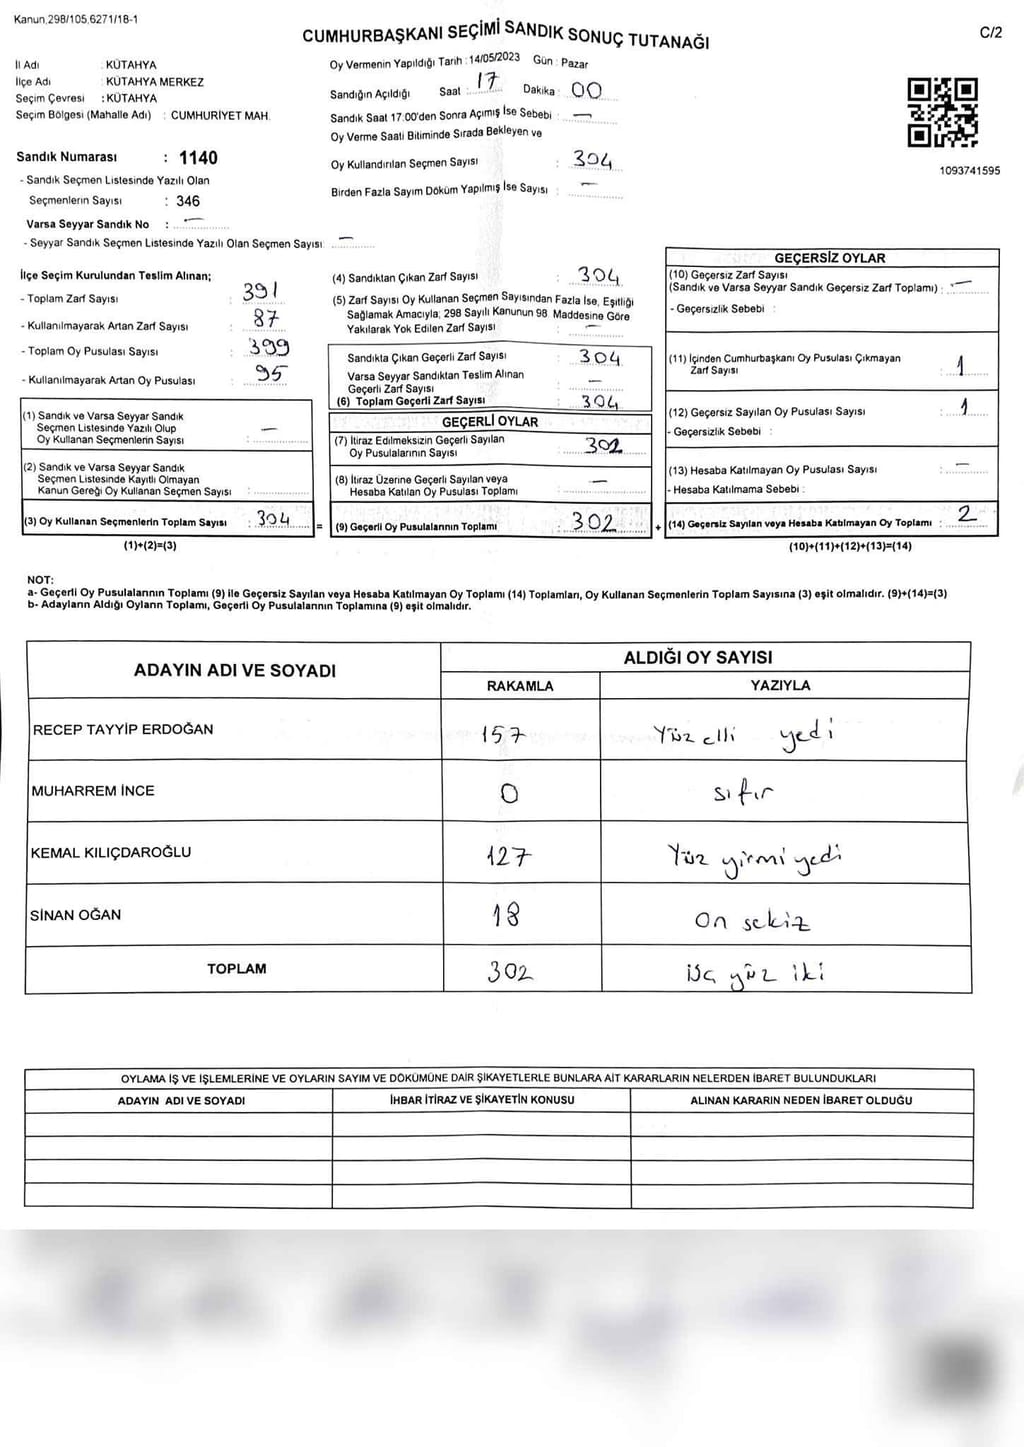 Kanun,298/105,6271/18-1
CUMHURBAŞKANI SEÇİMİ SANDIK SONUÇ TUTANAĞI
C/2
İl Adı : KÜTAHYA
İlçe Adı : KÜTAHYA MERKEZ
Seçim Çevresi : KÜTAHYA
Seçim Bölgesi (Mahalle Adı) : CUMHURİYET MAH.
Sandık Numarası : 1140
- Sandık Seçmen Listesinde Yazılı Olan
Seçmenlerin Sayısı : 346
Varsa Seyyar Sandık No : —
- Seyyar Sandık Seçmen Listesinde Yazılı Olan Seçmen Sayısı: —
Oy Vermenin Yapıldığı Tarih : 14/05/2023 Gün : Pazar
Sandığın Açıldığı Saat : 17 Dakika : 00
Sandık Saat 17:00'den Sonra Açılmış İse Sebebi : —
Oy Verme Saati Bitiminde Sırada Bekleyen ve
Oy Kullandırılan Seçmen Sayısı : 304
Birden Fazla Sayım Döküm Yapılmış İse Sayısı : —
1093741595
İlçe Seçim Kurulundan Teslim Alınan;
- Toplam Zarf Sayısı : 391
- Kullanılmayarak Artan Zarf Sayısı : 87
- Toplam Oy Pusulası Sayısı : 399
- Kullanılmayarak Artan Oy Pusulası : 95
(1) Sandık ve Varsa Seyyar Sandık
Seçmen Listesinde Yazılı Olup
Oy Kullanan Seçmenlerin Sayısı : —
(2) Sandık ve Varsa Seyyar Sandık
Seçmen Listesinde Kayıtlı Olmayan
Kanun Gereği Oy Kullanan Seçmen Sayısı :
(3) Oy Kullanan Seçmenlerin Toplam Sayısı : 304 =
(1)+(2)=(3)
(4) Sandıktan Çıkan Zarf Sayısı : 304
(5) Zarf Sayısı Oy Kullanan Seçmen Sayısından Fazla İse, Eşitliği
Sağlamak Amacıyla; 298 Sayılı Kanunun 98. Maddesine Göre
Yakılarak Yok Edilen Zarf Sayısı : —
Sandıkta Çıkan Geçerli Zarf Sayısı : 304
Varsa Seyyar Sandıktan Teslim Alınan
Geçerli Zarf Sayısı : —
(6) Toplam Geçerli Zarf Sayısı : 304
GEÇERLİ OYLAR
(7) İtiraz Edilmeksizin Geçerli Sayılan
Oy Pusulalarının Sayısı : 302
(8) İtiraz Üzerine Geçerli Sayılan veya
Hesaba Katılan Oy Pusulası Toplamı : —
(9) Geçerli Oy Pusulalarının Toplamı : 302 +
GEÇERSİZ OYLAR
(10) Geçersiz Zarf Sayısı
(Sandık ve Varsa Seyyar Sandık Geçersiz Zarf Toplamı) : —
- Geçersizlik Sebebi :
(11) İçinden Cumhurbaşkanı Oy Pusulası Çıkmayan
Zarf Sayısı : 1
(12) Geçersiz Sayılan Oy Pusulası Sayısı : 1
- Geçersizlik Sebebi :
(13) Hesaba Katılmayan Oy Pusulası Sayısı : —
- Hesaba Katılmama Sebebi :
(14) Geçersiz Sayılan veya Hesaba Katılmayan Oy Toplamı : 2
(10)+(11)+(12)+(13)=(14)
NOT:
a- Geçerli Oy Pusulalarının Toplamı (9) ile Geçersiz Sayılan veya Hesaba Katılmayan Oy Toplamı (14) Toplamları, Oy Kullanan Seçmenlerin Toplam Sayısına (3) eşit olmalıdır. (9)+(14)=(3)
b- Adayların Aldığı Oyların Toplamı, Geçerli Oy Pusulalarının Toplamına (9) eşit olmalıdır.
ADAYIN ADI VE SOYADI
ALDIĞI OY SAYISI
RAKAMLA YAZIYLA
RECEP TAYYİP ERDOĞAN 157 Yüz elli yedi
MUHARREM İNCE 0 sıfır
KEMAL KILIÇDAROĞLU 127 Yüz yirmi yedi
SİNAN OĞAN 18 On sekiz
TOPLAM 302 üç yüz iki
OYLAMA İŞ VE İŞLEMLERİNE VE OYLARIN SAYIM VE DÖKÜMÜNE DAİR ŞİKAYETLERLE BUNLARA AİT KARARLARIN NELERDEN İBARET BULUNDUKLARI
ADAYIN ADI VE SOYADI İHBAR İTİRAZ VE ŞİKAYETİN KONUSU ALINAN KARARIN NEDEN İBARET OLDUĞU